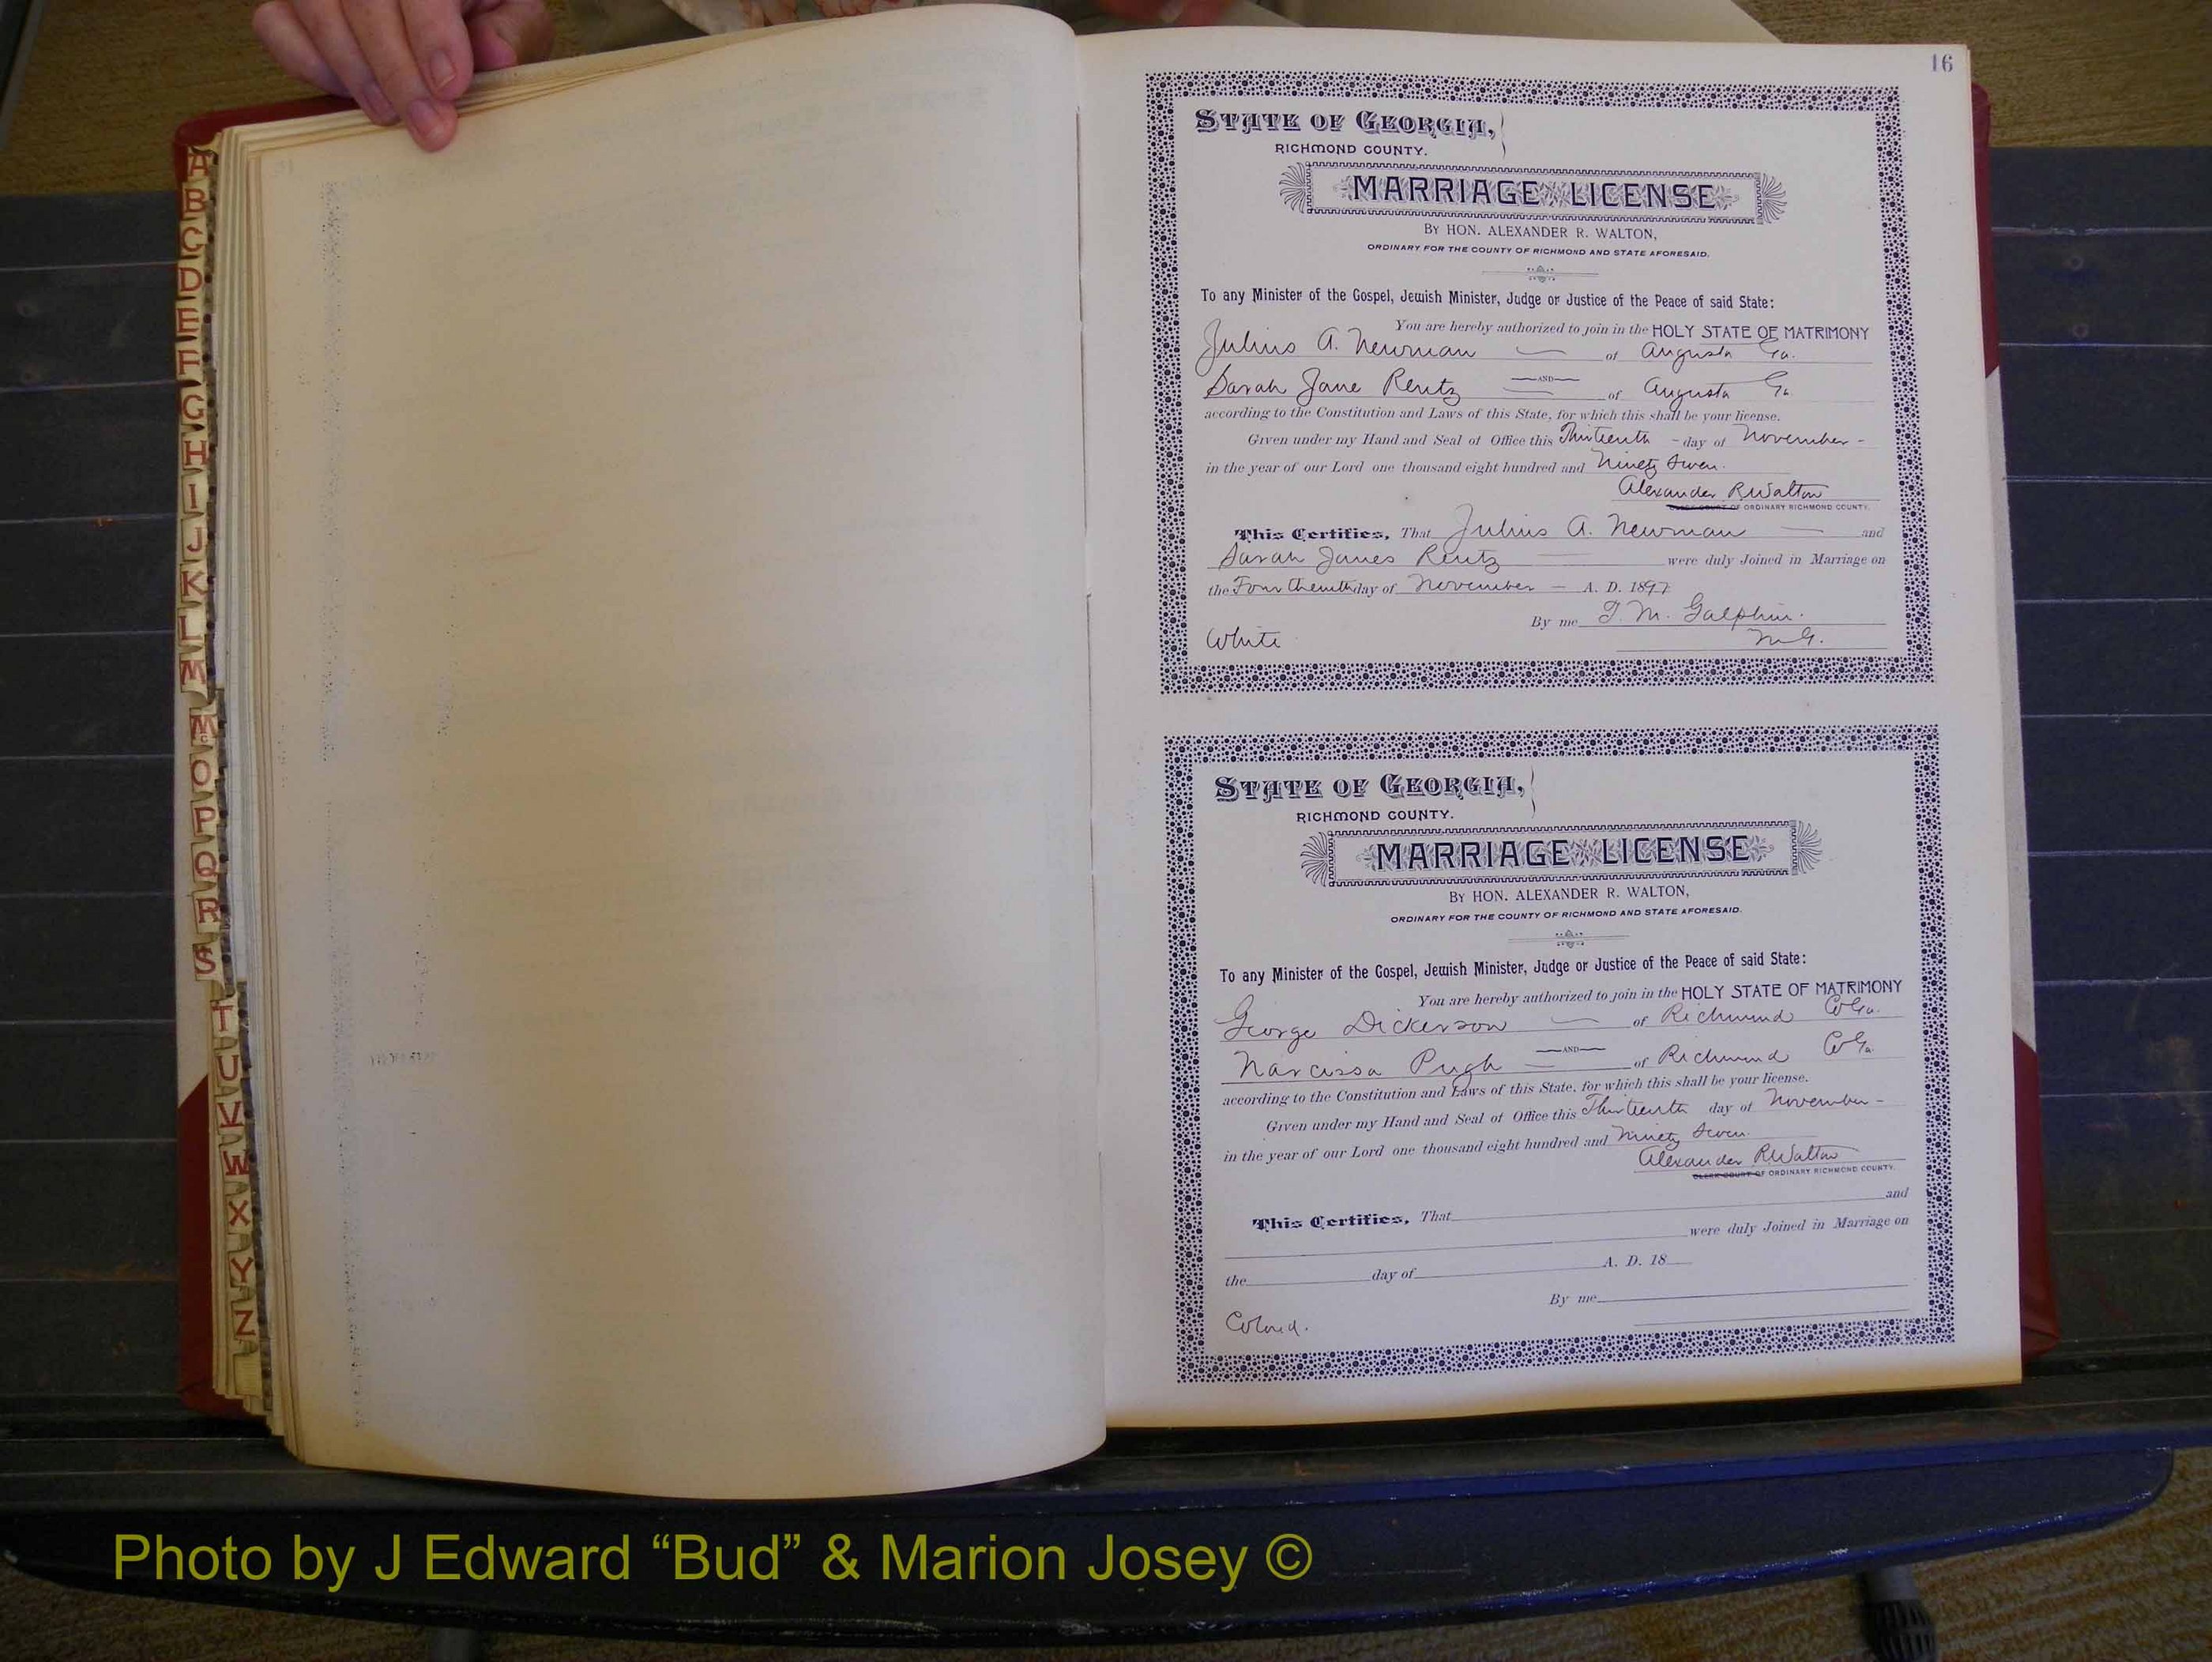 A
B
C
D
E
F
G
H
I
J
K
L
M
Mc
O
P
Q
R
S
T
U
V
W
X
Y
Z
16
STATE OF GEORGIA,
RICHMOND COUNTY.
MARRIAGE LICENSE
BY HON. ALEXANDER R. WALTON,
ORDINARY FOR THE COUNTY OF RICHMOND AND STATE AFORESAID.
To any Minister of the Gospel, Jewish Minister, Judge or Justice of the Peace of said State:
You are hereby authorized to join in the HOLY STATE OF MATRIMONY
Julius A. Newman — of Augusta Ga.
—AND—
Sarah Jane Rentz = of Augusta Ga
according to the Constitution and Laws of this State, for which this shall be your license.
Given under my Hand and Seal of Office this Thirteenth - day of November -
in the year of our Lord one thousand eight hundred and Ninety Seven.
Alexander R Walton
CLERK COURT OF ORDINARY RICHMOND COUNTY.
This Certifies, That Julius A. Newman — and
Sarah Janes Rentz = were duly Joined in Marriage on
the Fourtheenth day of November — A. D. 1897
By me T. M. Galphin.
White M.G.
STATE OF GEORGIA,
RICHMOND COUNTY.
MARRIAGE LICENSE
BY HON. ALEXANDER R. WALTON,
ORDINARY FOR THE COUNTY OF RICHMOND AND STATE AFORESAID.
To any Minister of the Gospel, Jewish Minister, Judge or Justice of the Peace of said State:
You are hereby authorized to join in the HOLY STATE OF MATRIMONY
George Dickerson — of Richmond Co Ga.
—AND—
Narcissa Pugh = of Richmond Co Ga.
according to the Constitution and Laws of this State, for which this shall be your license.
Given under my Hand and Seal of Office this Thirteenth day of November -
in the year of our Lord one thousand eight hundred and Ninety Seven.
Alexander R Walton
CLERK COURT OF ORDINARY RICHMOND COUNTY.
This Certifies, That and
were duly Joined in Marriage on
the day of A. D. 18
By me
Colored.
Photo by J Edward “Bud” & Marion Josey ©